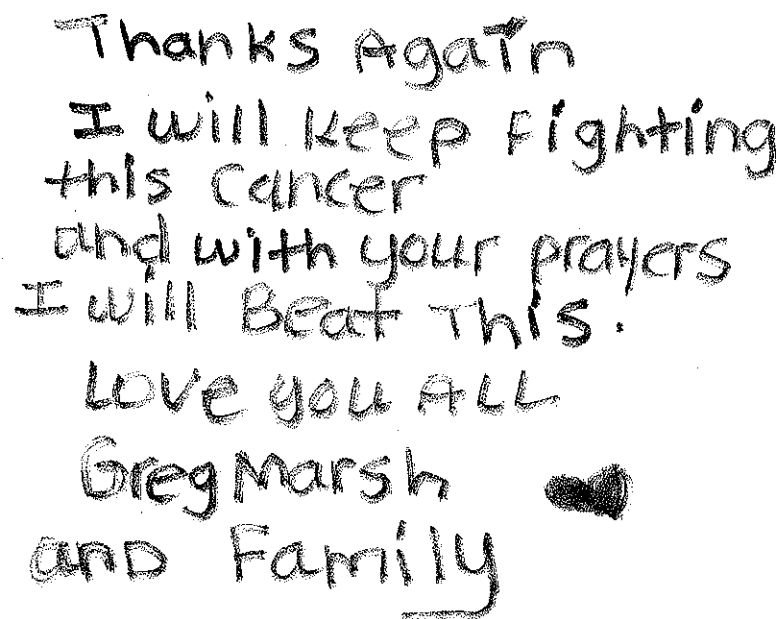 Thanks Again
I will keep Fighting
this cancer
and with your prayers
I will Beat This.
Love you ALL
Greg Marsh
and Family